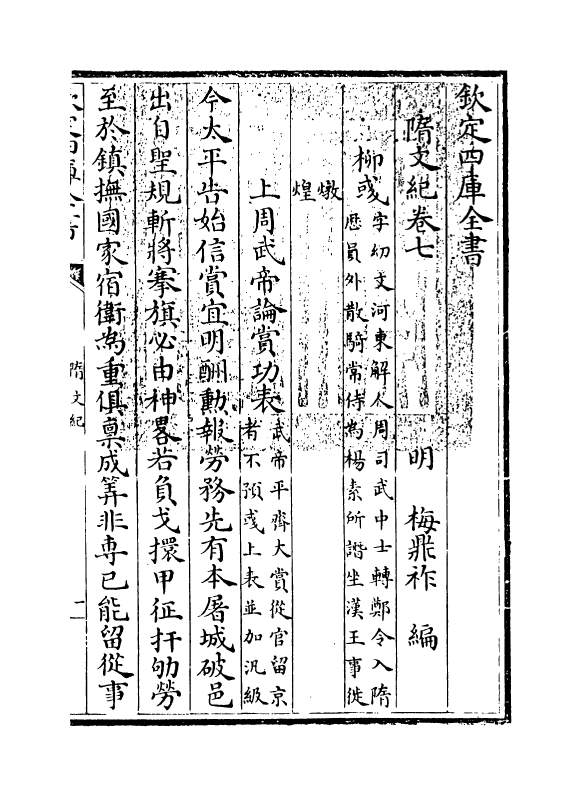 欽定四庫全書
隋文紀卷七
明　梅鼎祚　編
柳彧字幼文河東解人周司武中士轉鄭令入隋
歴員外散騎常侍為楊素所譖坐漢王事徙
燉
煌
上周武帝論賞功表武帝平齊大賞從官留京
者不預彧上表並加汎級
今太平告始信賞宜明酬勳報勞務先有本屠城破邑
出自聖規斬將搴旗必由神畧若負戈擐甲征扞劬勞
至於鎮撫國家宿衛為重俱禀成筭非専已能留從事
隋文紀
一